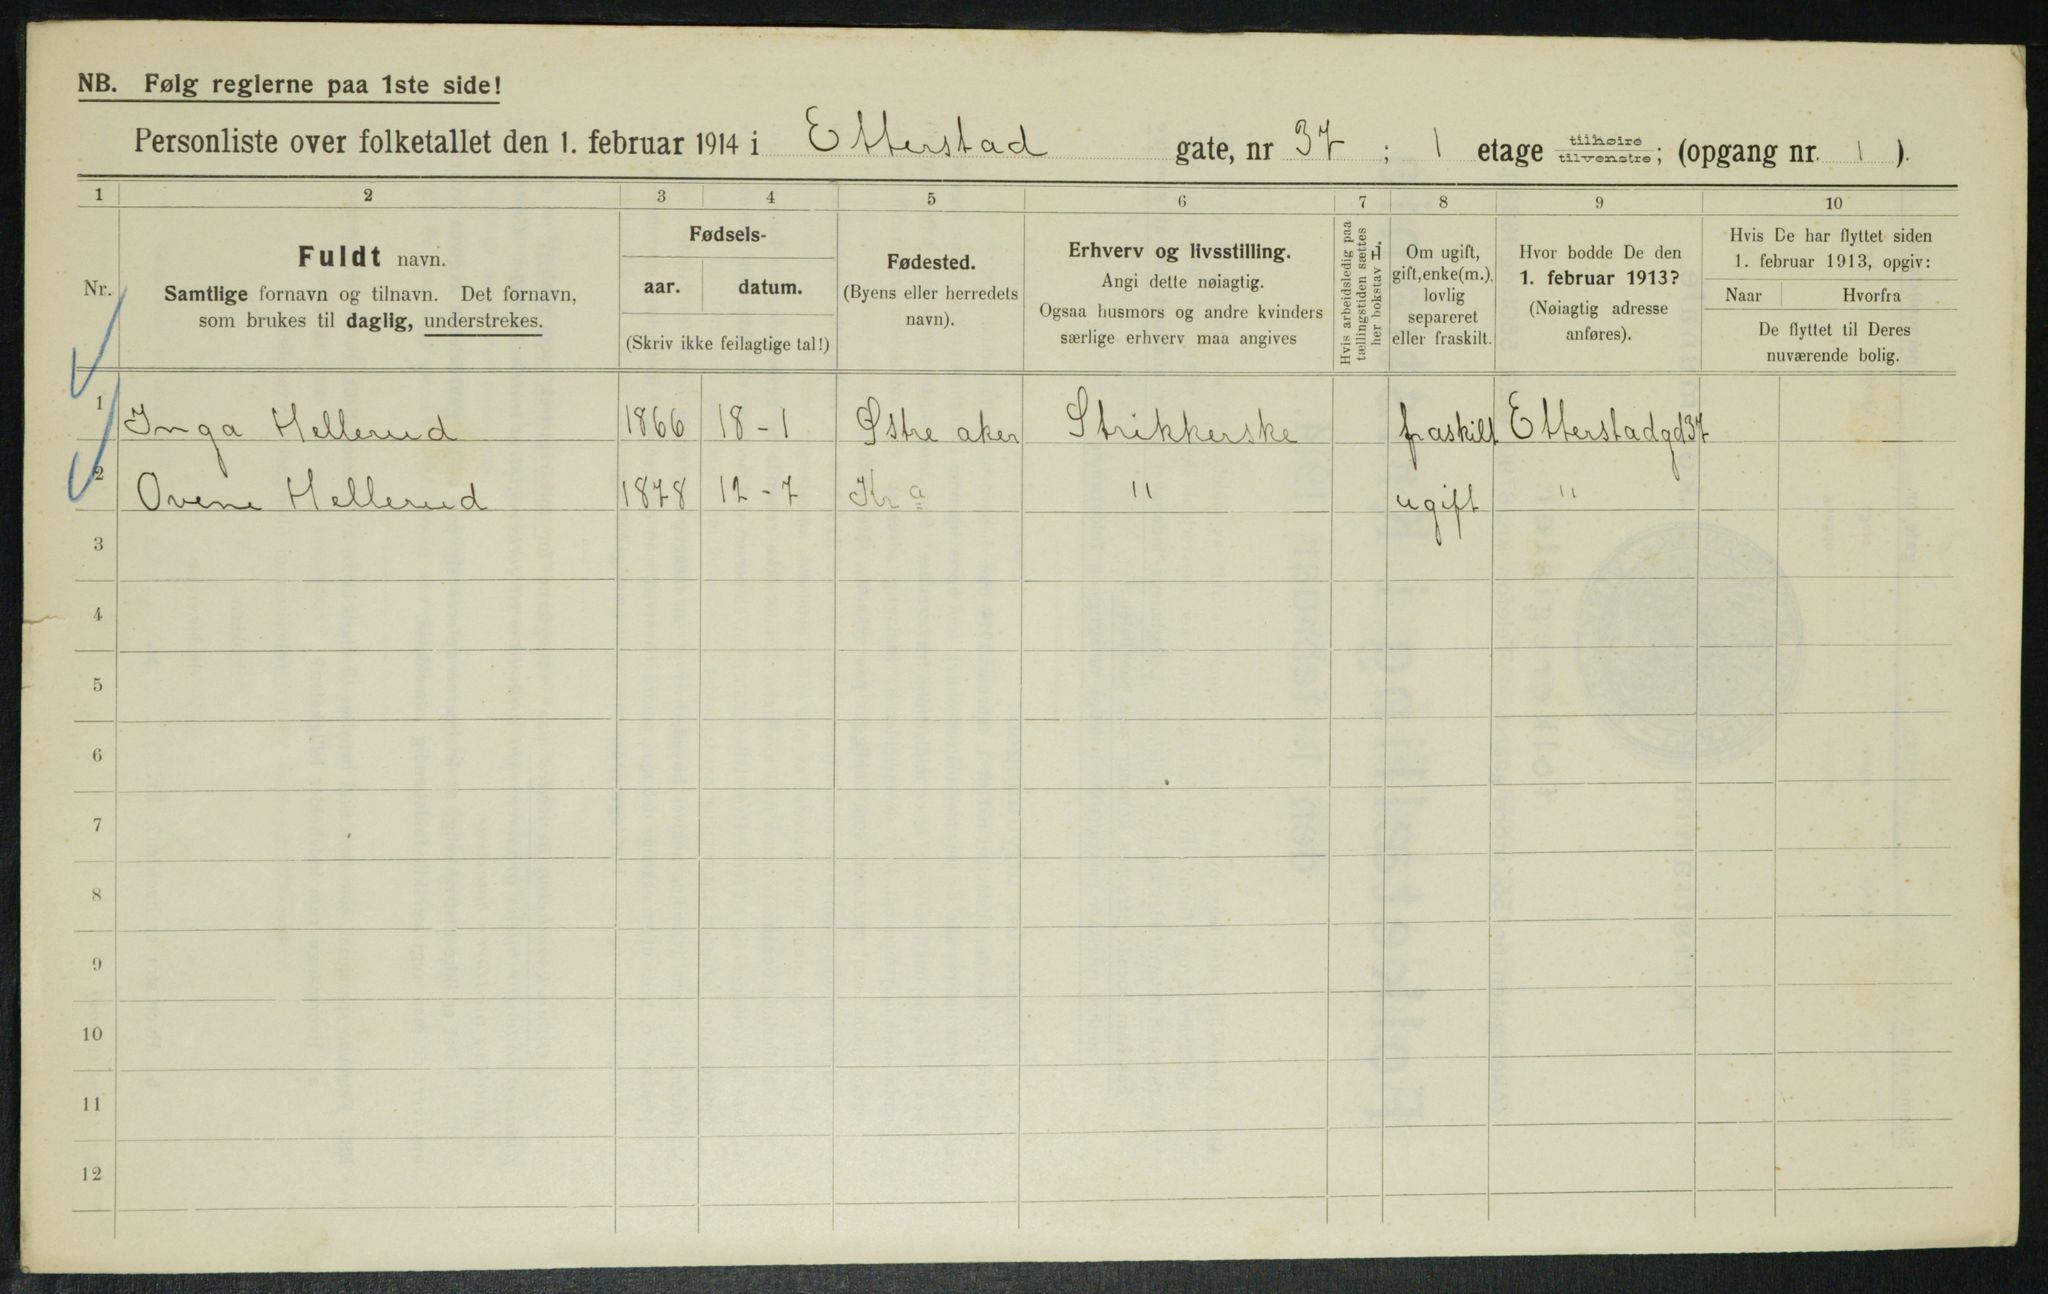 NB. Følg reglerne paa 1ste side!
Personliste over folketallet den 1. februar 1914 i Etterstad gate, nr 37 ; 1 etage tilhøire tilvenstre; (opgang nr. 1 ).
1 2 3 4 5 6 7 8 9 10
Nr.
Fuldt navn.
Samtlige fornavn og tilnavn. Det fornavn,
som brukes til daglig, understrekes.
Fødsels-
aar. datum.
(Skriv ikke feilagtige tal!)
Fødested.
(Byens eller herredets
navn).
Erhverv og livsstilling.
Angi dette nøiagtig.
Ogsaa husmors og andre kvinders
særlige erhverv maa angives
Hvis arbeidsledig paa
tællingstiden sættes
her bokstav L.
Om ugift,
gift, enke(m.),
lovlig
separeret
eller fraskilt.
Hvor bodde De den
1. februar 1913?
(Nøiagtig adresse
anføres).
Hvis De har flyttet siden
1. februar 1913, opgiv:
Naar Hvorfra
De flyttet til Deres
nuværende bolig.
1 Inga Hellerud 1866 18-1 Østre aker Strikkerske fraskilt Etterstadgd 37
2 Ovene Hellerud 1878 12-7 Kra " ugift "
3
4
5
6
7
8
9
10
11
12